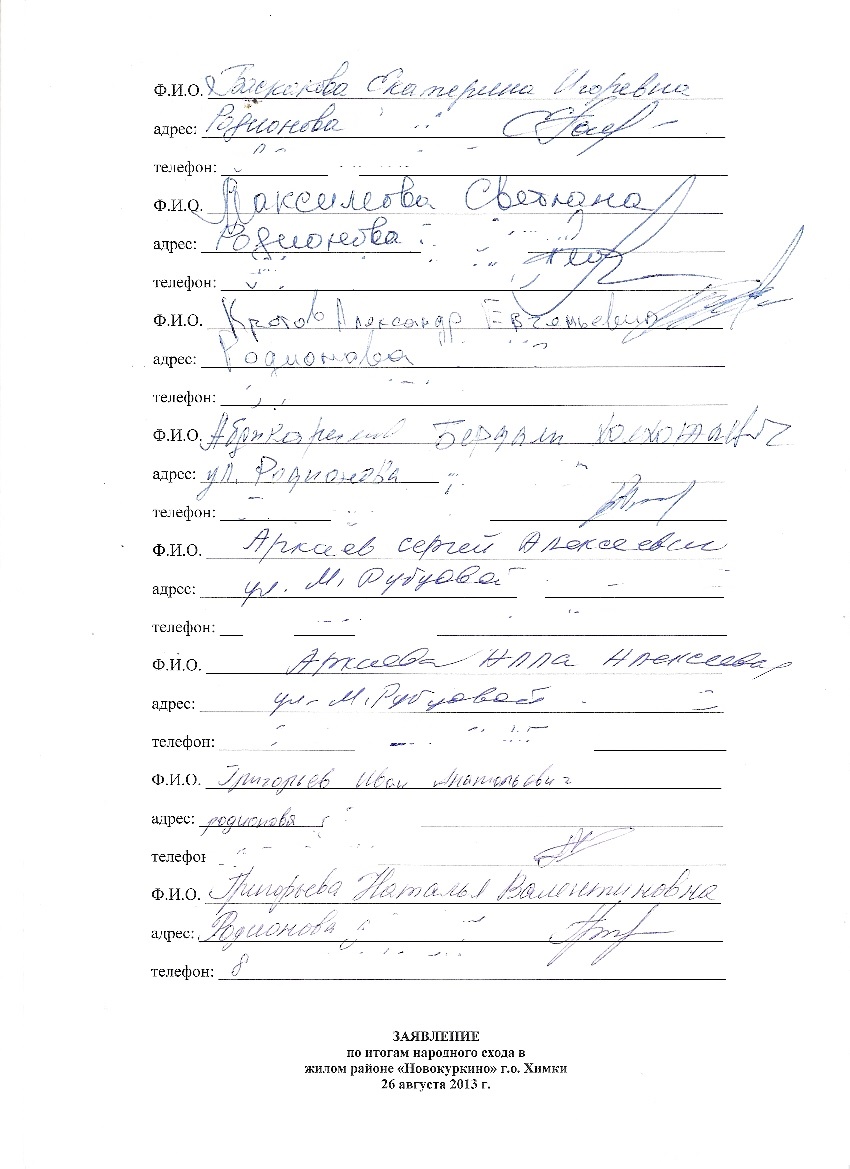 Ф.И.О. Баскакова Екатерина Игоревна
адрес: Родионова
телефон:
Ф.И.О. Максимова Светлана
адрес: Родионова
телефон:
Ф.И.О. Кротов Александр Евгеньевич
адрес: Родионова
телефон:
Ф.И.О.
адрес: ул. Родионова
телефон:
Ф.И.О. Аркаев Сергей Алексеевич
адрес: ул. М. Рубцовой
телефон:
Ф.И.О. Аркаева Алла Алексеевна
адрес: ул. М. Рубцовой
телефон:
Ф.И.О. Григорьев Иван Анатольевич
адрес: родионова
телефон
Ф.И.О. Григорьева Наталья Валентиновна
адрес: Родионова
телефон: 8
ЗАЯВЛЕНИЕ
по итогам народного схода в
жилом районе «Новокуркино» г.о. Химки
26 августа 2013 г.